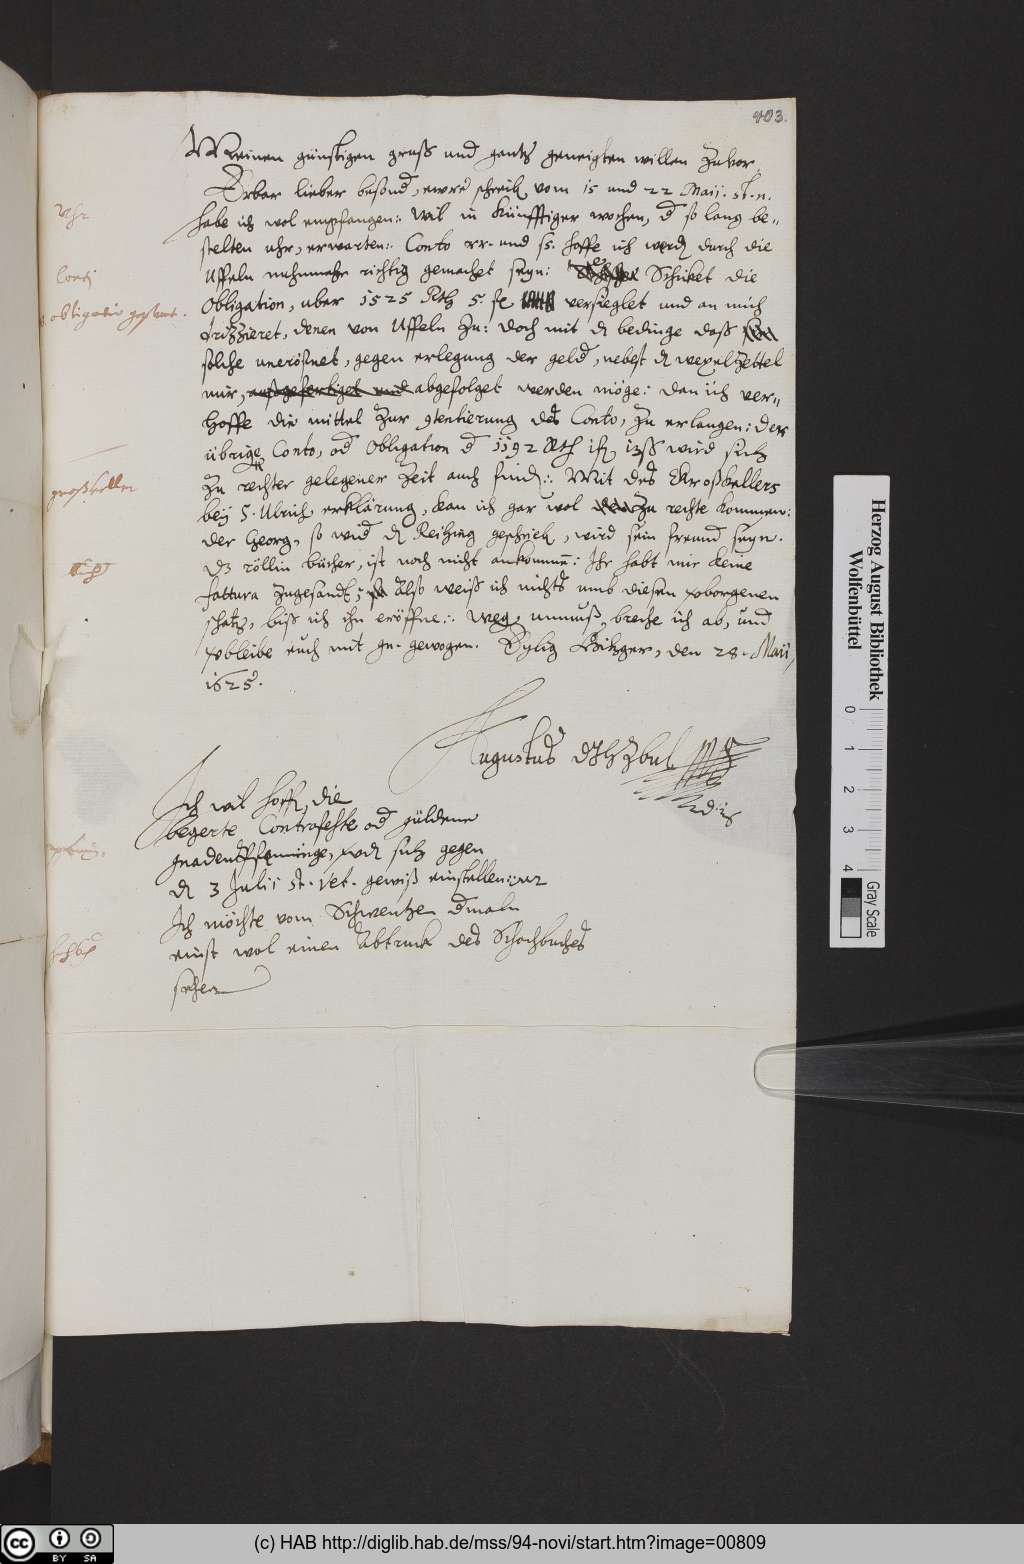 403.
Meinen günstigen gruß und gantz geneigten willen zuvor
Erbar lieber besond, ewre schreib vom 15 und 22 Maij. st. n.
habe ich wol empfangen: wil in künfftiger wochen, d so lang be=
stelten uhr, erwarten: Conto rr. und ss. hoffe ich werd durch die
Uffeln nuhnmehr richtig gemachet seyn: Schicket die
Obligation, uber 1525 Rth 5. versieglet und an mich
drizzieret, denen von Uffeln zu: doch mit d bedinge daß
solche uneröfnet, gegen erlegung der geld, nebest d wexelzettel
mir, außgefertiget und abgefolget werden möge: dan ich ver=
hoffe die mittel zur des Conto, zu erlangen: der
übrige Conto, od Obligation d 1192 Rth wird sich
zu rechter gelegener Zeit auch find: Mit des Großkellers
beij S. Ulrich, erklärung, kan ich gar wol zu rechte kommen:
der Georg, so wid d Reihing geschrieb, wird sein freund seyn.
Dz röllin bücher, ist noch nicht ankommen: Ihr habt mir keine
fattura zugesandt; Also weiß ich nichts umb diesen verborgenen
schatz, biß ich ihn eröffne: Weg. unmuß, breche ich ab, und
verbleibe euch mit gn. gewogen. Eylig Hitzger, den 28. Maij,
1625.
Augustus
Ich wil hoff, die
begerte Contrafehte od güldene
gnadenpfenninge, werd sich gegen
d 3 Julii st. vet. gewiß einstellen:
Ich möchte vom Schwentze dmaln
einst wol einen Abtruck des Schachbuches
sehen
Uhr
Conti
obligatio
großkeller
Herzog August Bibliothek
Wolfenbüttel
0 1 2 3 4
Gray Scale
cc BY SA
(c) HAB http://diglib.hab.de/mss/94-novi/start.htm?image=00809